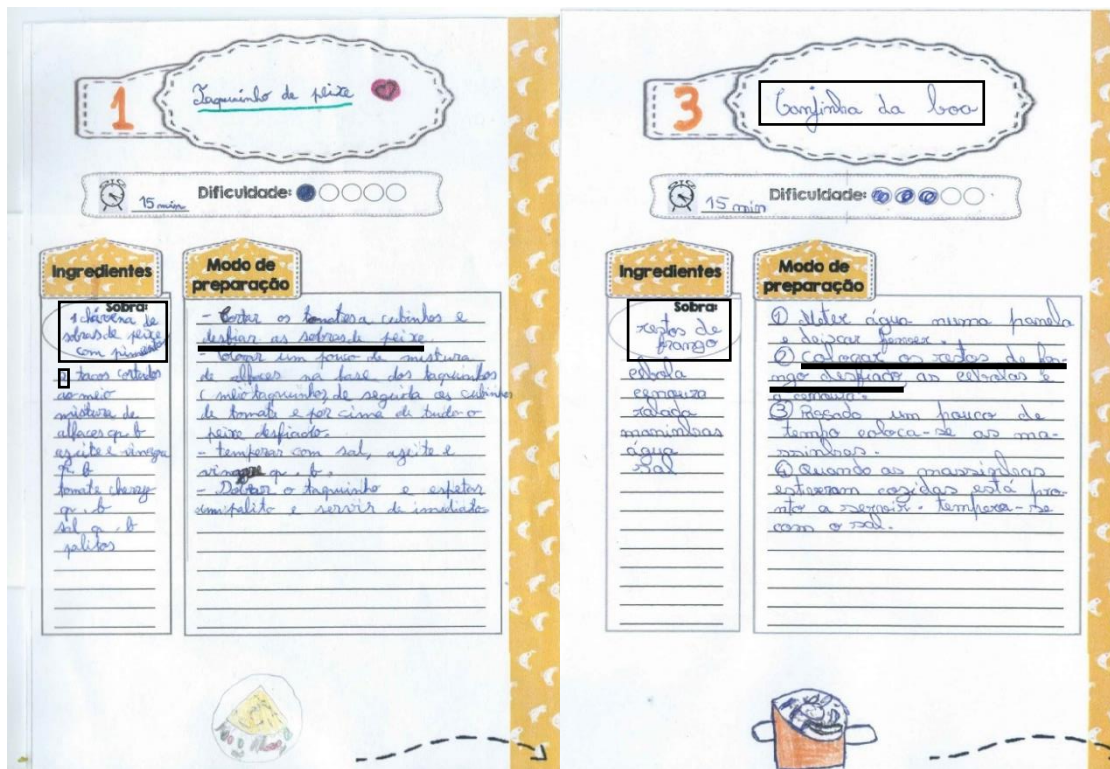 1
Taquinho de peixe
15 min
Dificuldade:
Ingredientes
Sobra:
1 chávena de
sobras de peixe
com pimento
tacos cortados
ao meio
mistura de
alfaces q. b
azeite e vinagre
q. b
tomate cherry
q. b
sal q. b
palitos
Modo de
preparação
- Cortar os tomates a cubinhos e
desfiar as sobras de peixe.
- Colocar um pouco de mistura
de alfaces na base dos taquinhos
(meio taquinho) de seguida os cubinhos
de tomate e por cima de tudo o
peixe desfiado.
- temperar com sal, azeite e
vinagre q. b.
- Dobrar o taquinho e espetar
um palito e servir de imediato
3
Canjinha da boa
15 min
Dificuldade:
Ingredientes
Sobra:
restos de
frango
cebola
cenoura
ralada
massinhas
água
sal
Modo de
preparação
① Meter água numa panela
e deixar ferver.
② Colocar os restos de fran-
go desfiado as cebolas e
a cenoura.
③ Passado um pouco de
tempo coloca-se as ma-
ssinhas.
④ Quando as massinhas
estiveram cozidas está pron-
to a servir. tempera-se
com o sal.